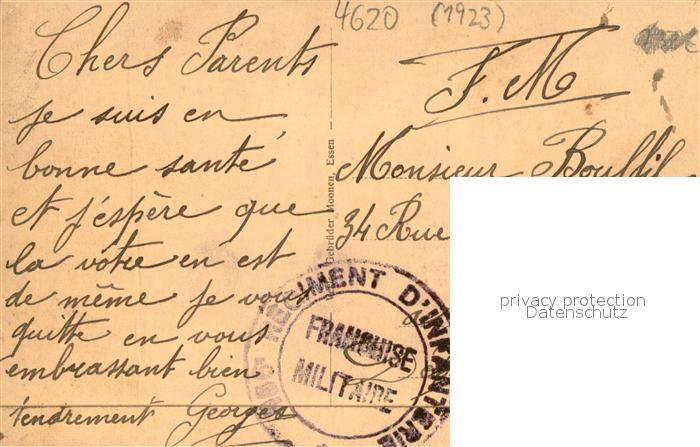 4620 (1923)
Chers Parents
je suis en
bonne santé
et j'éspère que
la vôtre en est
de même je vous
quitte en vous
embrassant bien
tendrement Georges
Gebrüder Moonen, Essen
F. M
Monsieur
34 Rue
REGIMENT D'INFANTERIE
FRANCHISE
MILITAIRE
privacy protection
Datenschutz